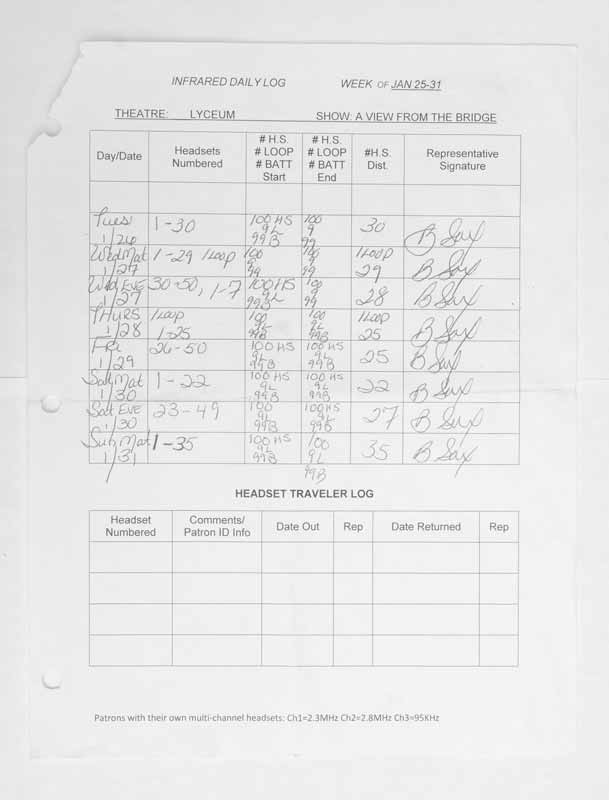 INFRARED DAILY LOG WEEK OF JAN 25-31
THEATRE: LYCEUM SHOW: A VIEW FROM THE BRIDGE
Day/Date Headsets Numbered # H.S. # LOOP # BATT Start # H.S. # LOOP # BATT End #H.S. Dist. Representative Signature
Tues 1/26 1-30 100 HS 9L 99B 100 9 99 30 B Sax
Wed Mat 1/27 1-29 1 Loop 100 9 99 100 9 99 1 Loop 29 B Sax
Wed Eve 1/27 30-50, 1-7 100 HS 9L 99B 100 9 99 28 B Sax
THURS 1/28 1 Loop 1-25 100 9L 99B 100 9L 99B 1 Loop 25 B Sax
Fri 1/29 26-50 100 HS 9L 99B 100 HS 9L 99B 25 B Sax
Sat Mat 1/30 1-22 100 HS 9L 99B 100 HS 9L 99B 22 B Sax
Sat Eve 1/30 23-49 100 9L 99B 100 HS 9L 99B 27 B Sax
Sun Mat 1/31 1-35 100 HS 9L 99B 100 9L 99B 35 B Sax
HEADSET TRAVELER LOG
Headset Numbered Comments/ Patron ID Info Date Out Rep Date Returned Rep
Patrons with their own multi-channel headsets: Ch1=2.3MHz Ch2=2.8MHz Ch3=95KHz